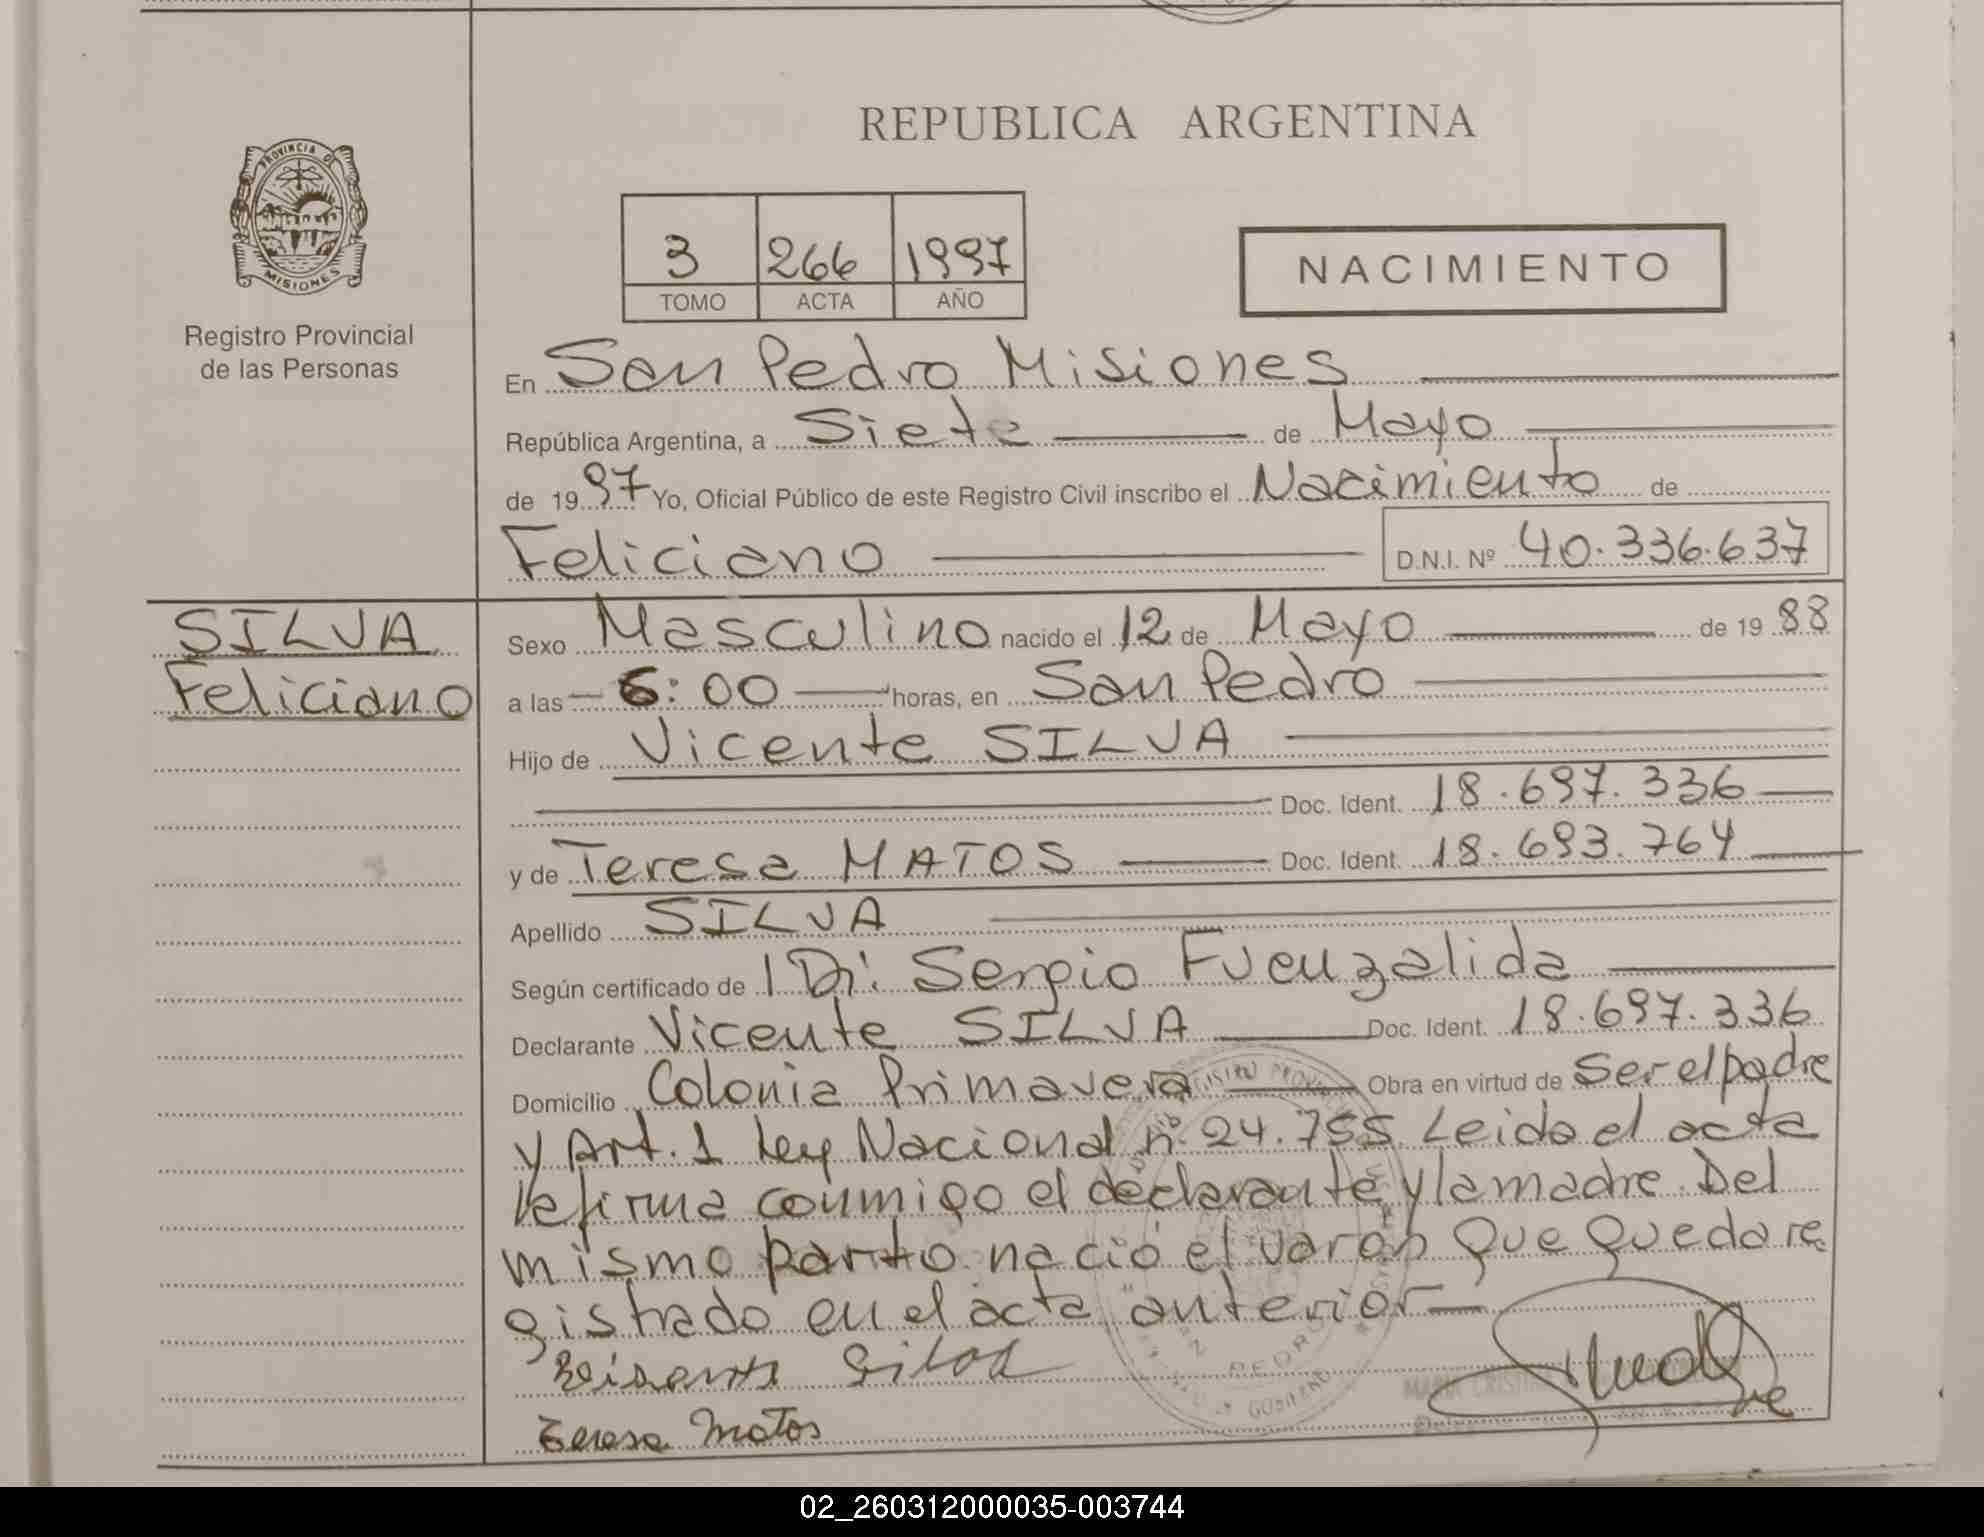 REPUBLICA ARGENTINA
PROVINCIA DE
MISIONES
Registro Provincial
de las Personas
3 266 1997
TOMO ACTA AÑO
NACIMIENTO
En San Pedro Misiones
República Argentina, a Siete de Mayo
de 1997 Yo, Oficial Público de este Registro Civil inscribo el Nacimiento de
Feliciano D.N.I. Nº 40.336.637
SILVA
Feliciano
Sexo Masculino nacido el 12 de Mayo de 1988
a las 6:00 horas, en San Pedro
Hijo de Vicente SILVA
Doc. Ident. 18.697.336
y de Teresa MATOS Doc. Ident. 18.693.764
Apellido SILVA
Según certificado de Dr: Sergio Fuenzalida
Declarante Vicente SILVA Doc. Ident. 18.697.336
Domicilio Colonia Primavera Obra en virtud de Ser el padre
y Art. 1 Ley Nacional nº 24.755. Leida el acta
la firma conmigo el declarante y la madre. Del
mismo parto nació el varon que queda re
gistrado en el acta anterior
Teresa Matos
PEDRO
GOBIERNO
MARIA CRISTINA
02_260312000035-003744